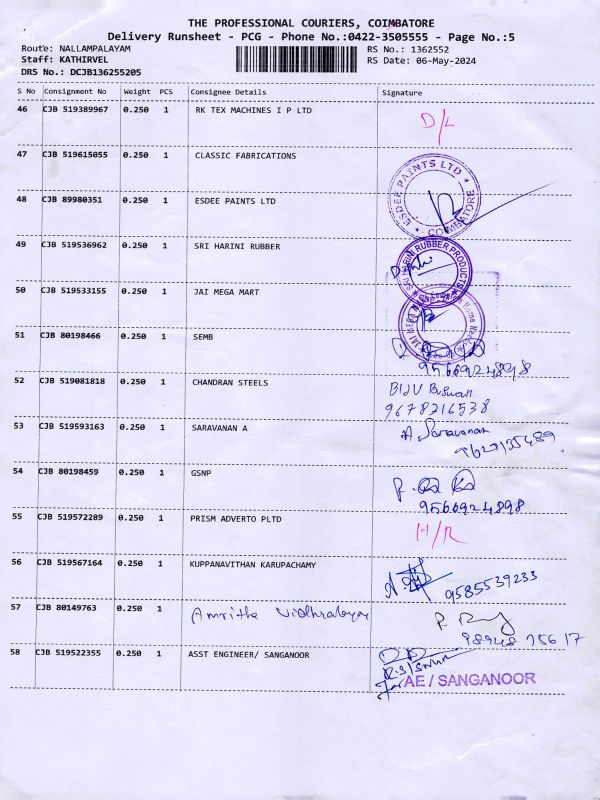 THE PROFESSIONAL COURIERS, COIMBATORE
Delivery Runsheet - PCG - Phone No.:0422-3505555 - Page No.:5
Route: NALLAMPALAYAM RS No.: 1362552
Staff: KATHIRVEL RS Date: 06-May-2024
DRS No.: DCJB136255205
S No Consignment No Weight PCS Consignee Details Signature
46 CJB 519389967 0.250 1 RK TEX MACHINES I P LTD
D/L
47 CJB 519615055 0.250 1 CLASSIC FABRICATIONS
ESDEE PAINTS LTD
COIMBATORE
48 CJB 89980351 0.250 1 ESDEE PAINTS LTD
49 CJB 519536962 0.250 1 SRI HARINI RUBBER
SRI HARINI RUBBER PRODUCTS
50 CJB 519533155 0.250 1 JAI MEGA MART
JAI MEGA
51 CJB 80198466 0.250 1 SEMB
9566924898
52 CJB 519081818 0.250 1 CHANDRAN STEELS
9678216538
53 CJB 519593163 0.250 1 SARAVANAN A
A Saravanan
54 CJB 80198459 0.250 1 GSNP
9566924898
55 CJB 519572289 0.250 1 PRISM ADVERTO PLTD
H/R
56 CJB 519567164 0.250 1 KUPPANAVITHAN KARUPACHAMY
9585539233
57 CJB 80149763 0.250 1 Amritha Vidhyalayas
58 CJB 519522355 0.250 1 ASST ENGINEER/ SANGANOOR
For AE / SANGANOOR